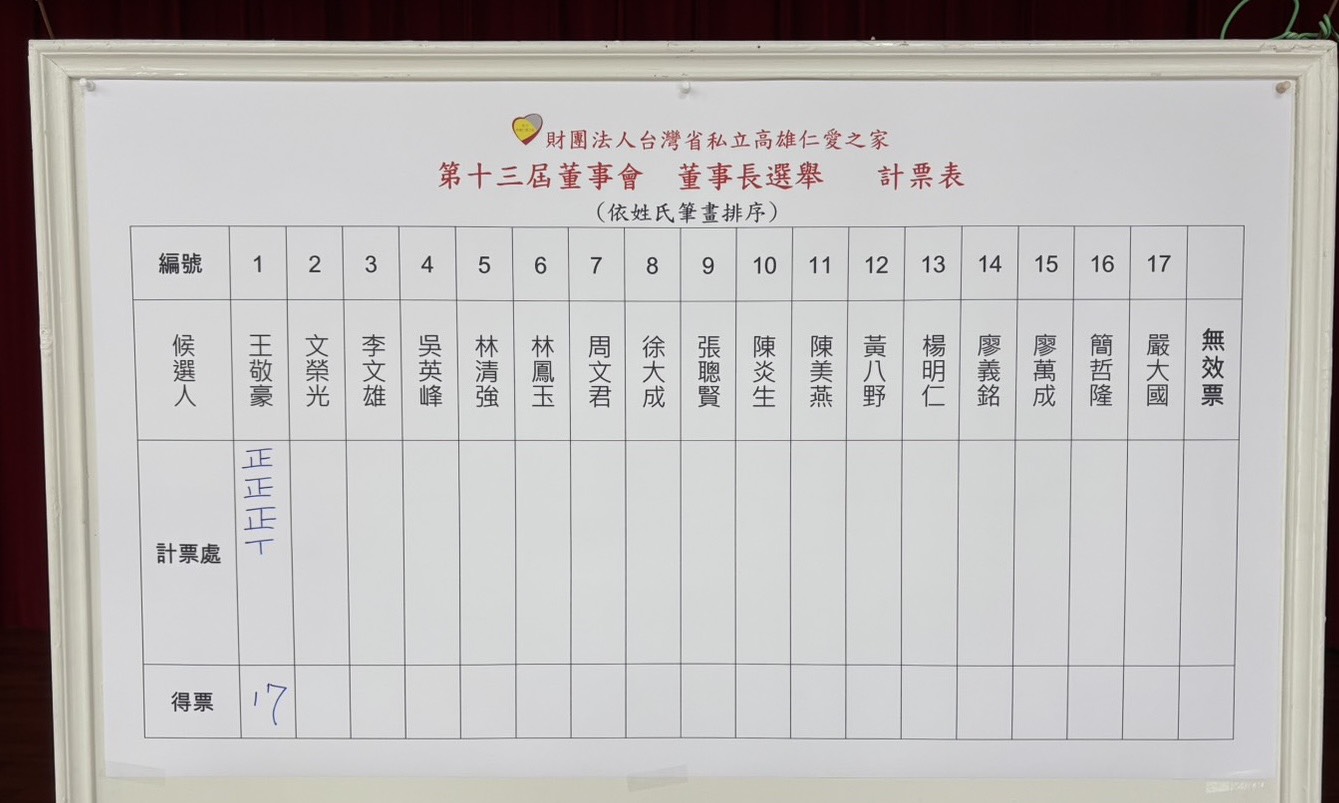 財團法人台灣省私立高雄仁愛之家
第十三屆董事會 董事長選舉 計票表
（依姓氏筆畫排序）
編號 1 2 3 4 5 6 7 8 9 10 11 12 13 14 15 16 17
候選人 王敬豪 文榮光 李文雄 吳英峰 林清強 林鳳玉 周文君 徐大成 張聰賢 陳炎生 陳美燕 黃八野 楊明仁 廖義銘 廖萬成 簡哲隆 嚴大國 無效票
計票處 正
正
正
丅
得票 17